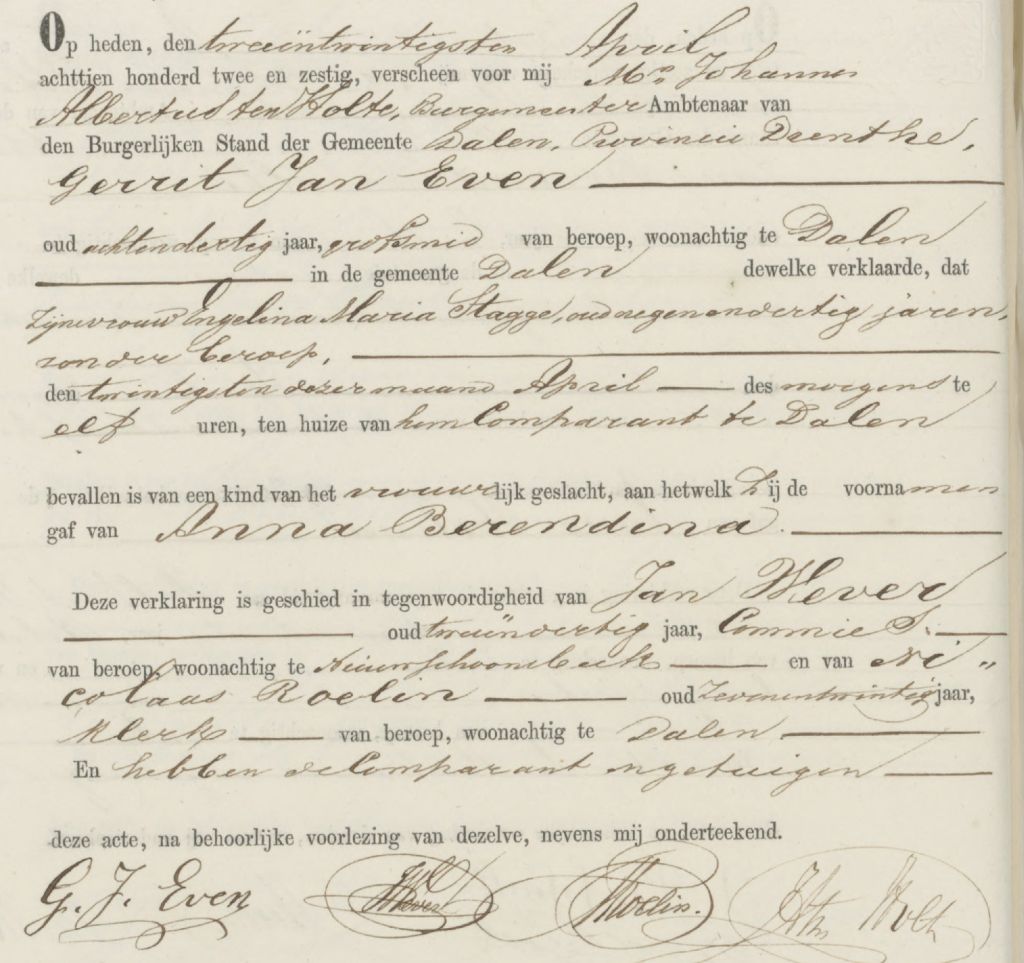 Op heden, den tweeïntwintigsten April
achttien honderd twee en zestig, verscheen voor mij Mr. Johannes
Albertus ten Holte, Burgemeester Ambtenaar van
den Burgerlijken Stand der Gemeente Dalen, Provincie Drenthe,
Gerrit Jan Even
oud achtendertig jaar, grofsmid van beroep, woonachtig te Dalen
in de gemeente Dalen dewelke verklaarde, dat
zijne vrouw Engelina Maria Stagge, oud negenendertig jaren,
zonder beroep,
den twintigsten dezer maand April des morgens te
elf uren, ten huize van hem Comparant te Dalen
bevallen is van een kind van het vrouwelijk geslacht, aan hetwelk Zij de voornamen
gaf van Anna Berendina.
Deze verklaring is geschied in tegenwoordigheid van Jan Wever
oud tweeïndertig jaar, Commies.
van beroep, woonachtig te Nieuwschoonebeek en van Ni„
colaas Roelin oud Zevenentwintig jaar,
Klerk van beroep, woonachtig te Dalen
En hebben de Comparant en getuigen
deze acte, na behoorlijke voorlezing van dezelve, nevens mij onderteekend.
G. J. Even Wever Roelin. Holte